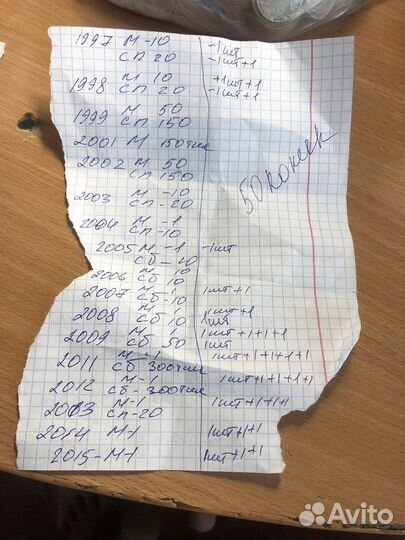 1997 М-10 -1шт
СП 20 -1шт+1
1998 М 10 +1шт+1
СП 20 -1шт+1
1999 М 50
СП 150
2001 М 150тыс
2002 М 50
СП 150
50 копеек
2003 М -10
СП -20
2004 М -1
СП -10
2005 М -1 -1шт
СБ -10
2006 М 10
СБ 10
2007 М -1 1шт+1
СБ -10
2008 М 1 1шт+1
СБ 10 1шт
2009 М 1 1шт+1+1+1
СБ 50 1шт
2011 М -1 1шт+1+1+1+1
СБ 300тыс
2012 М-1 1шт+1+1+1+1
СБ-300тыс
2013 М-1 1шт+1+1+1
СП-20
2014 М-1 1шт+1+1
2015-М-1 1шт+1+1
Avito